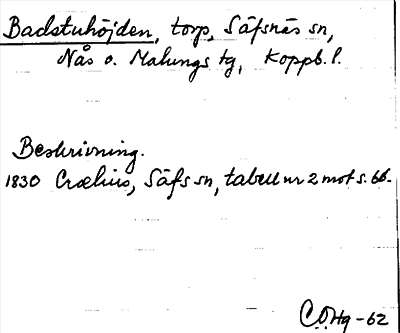 Badstuhöjden, torp, Säfsnäs sn,
Nås o. Malungs tg, Koppb. l.
Beskrivning.
1830 Crælius, Säfs sn, tabell nr 2 mot s. 66.
C.O.Hg -62